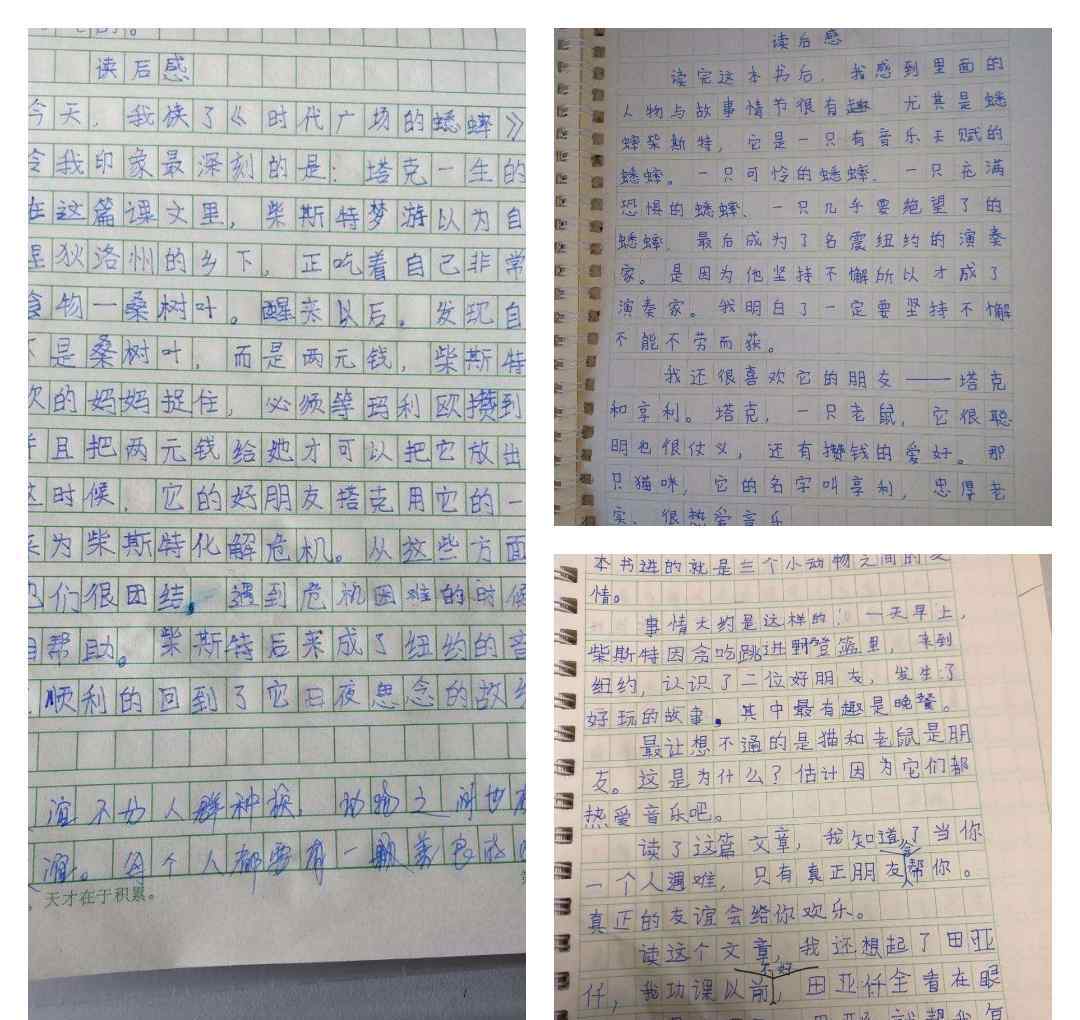 读后感
今天，我读了《时代广场的蟋蟀》
令我印象最深刻的是：塔克一生的
在这篇课文里，柴斯特梦游以为自
是狄洛州的乡下，正吃着自己非常
食物一桑树叶。醒来以后。发现自
不是桑树叶，而是两元钱，柴斯特
欧的妈妈捉住，必须等玛利欧攒到
并且把两元钱给她才可以把它放出
这时候，它的好朋友塔克用它的一
来为柴斯特化解危机。从这些方面
他们很团结，遇到危机困难的时候
相帮助。柴斯特后来成了纽约的音
顺利的回到了它日夜思念的故
谊不分人群种族，动物之间也有
谊。每个人都要有一颗善良的心
天才在于积累。
读后感
读完这本书后，我感到里面的
人物与故事情节很有趣 尤其是蟋
蟀柴斯特，它是一只有音乐天赋的
蟋蟀。一只可怜的蟋蟀、一只充满
恐惧的蟋蟀、一只几乎要绝望了的
蟋蟀，最后成为了名震纽约的演奏
家。是因为他坚持不懈所以才成了
演奏家。我明白了一定要坚持不懈
不能不劳而获。
我还很喜欢它的朋友——塔克
和亨利。塔克，一只老鼠，它很聪
明也很仗义，还有攒钱的爱好。那
只猫咪，它的名字叫亨利，忠厚老
实、很热爱音乐
本书讲的就是三个小动物之间的友
情。
事情大约是这样的：一天早上，
柴斯特因贪吃跳进野餐篮里，来到
纽约，认识了二位好朋友，发生了
好玩的故事。其中最有趣是晚餐。
最让想不通的是猫和老鼠是朋
友。这是为什么？估计因为它们都
热爱音乐吧。
读了这篇文章，我知道了当你
一个人遇难，只有真正朋友会帮你。
真正的友谊会给你欢乐。
读这个文章，我还想起了田亚
仟，我功课以前不好，田亚仟全看在眼